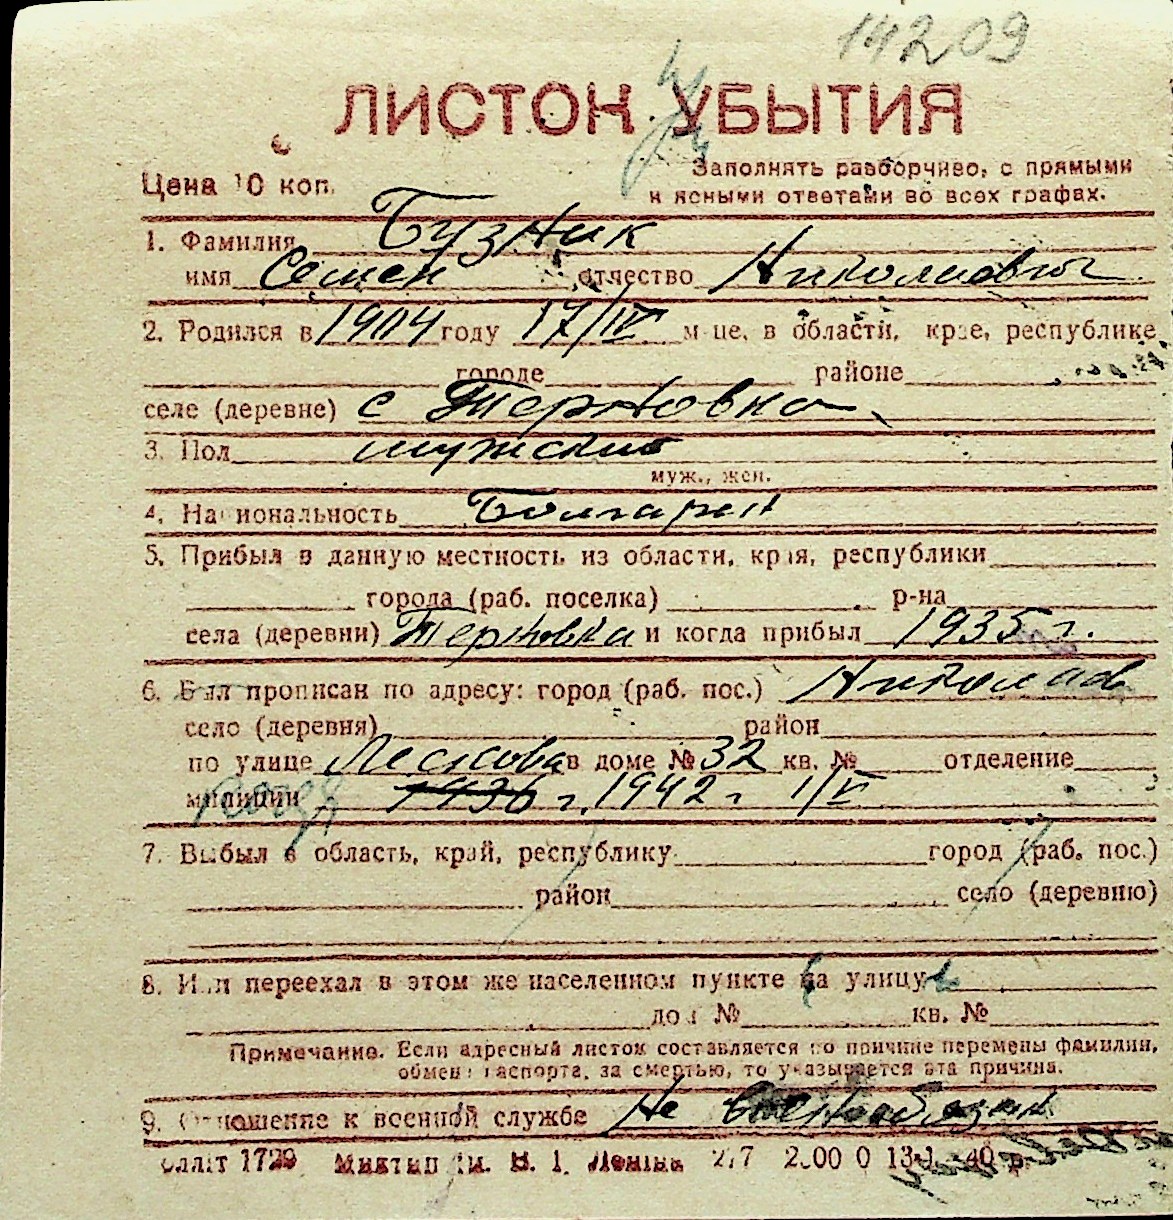 14209
ЛИСТОК УБЫТИЯ
Цена 10 коп.
Заполнять разборчиво, с прямыми
и ясными ответами во всех графах.
1. Фамилия Бузник
имя Семен отчество Николаевич
2. Родился в 1904 году 17/IV м-це, в области, крае, республике
городе районе
селе (деревне) с Терновка
3. Пол мужской
муж., жен.
4. Национальность Болгарин
5. Прибыл в данную местность из области, края, республики
города (раб. поселка) р-на
села (деревни) Терновка и когда прибыл 1935 г.
6. Был прописан по адресу: город (раб. пос.) Николаев
село (деревня) район
по улице Лескова в доме № 32 кв. № отделение
милиции 1936 г. 1942 г 1/V
7. Выбыл в область, край, республику город (раб. пос.)
район село (деревню)
8. Или переехал в этом же населенном пункте на улицу
дом № кв. №
Примечание. Если адресный листок составляется по причине перемены фамилии,
обмена паспорта, за смертью, то указывается эта причина.
9. Отношение к военной службе Не военнообязан
1729 ім. В. І. Леніна 2.7